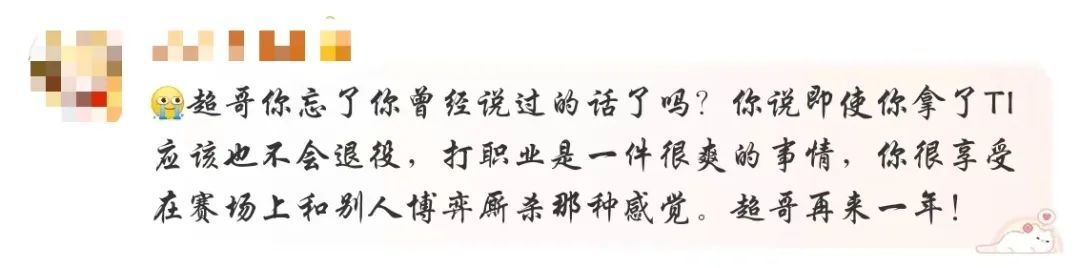 超哥你忘了你曾经说过的话了吗？你说即使你拿了TI
应该也不会退役，打职业是一件很爽的事情，你很享受
在赛场上和别人博弈厮杀那种感觉。超哥再来一年！